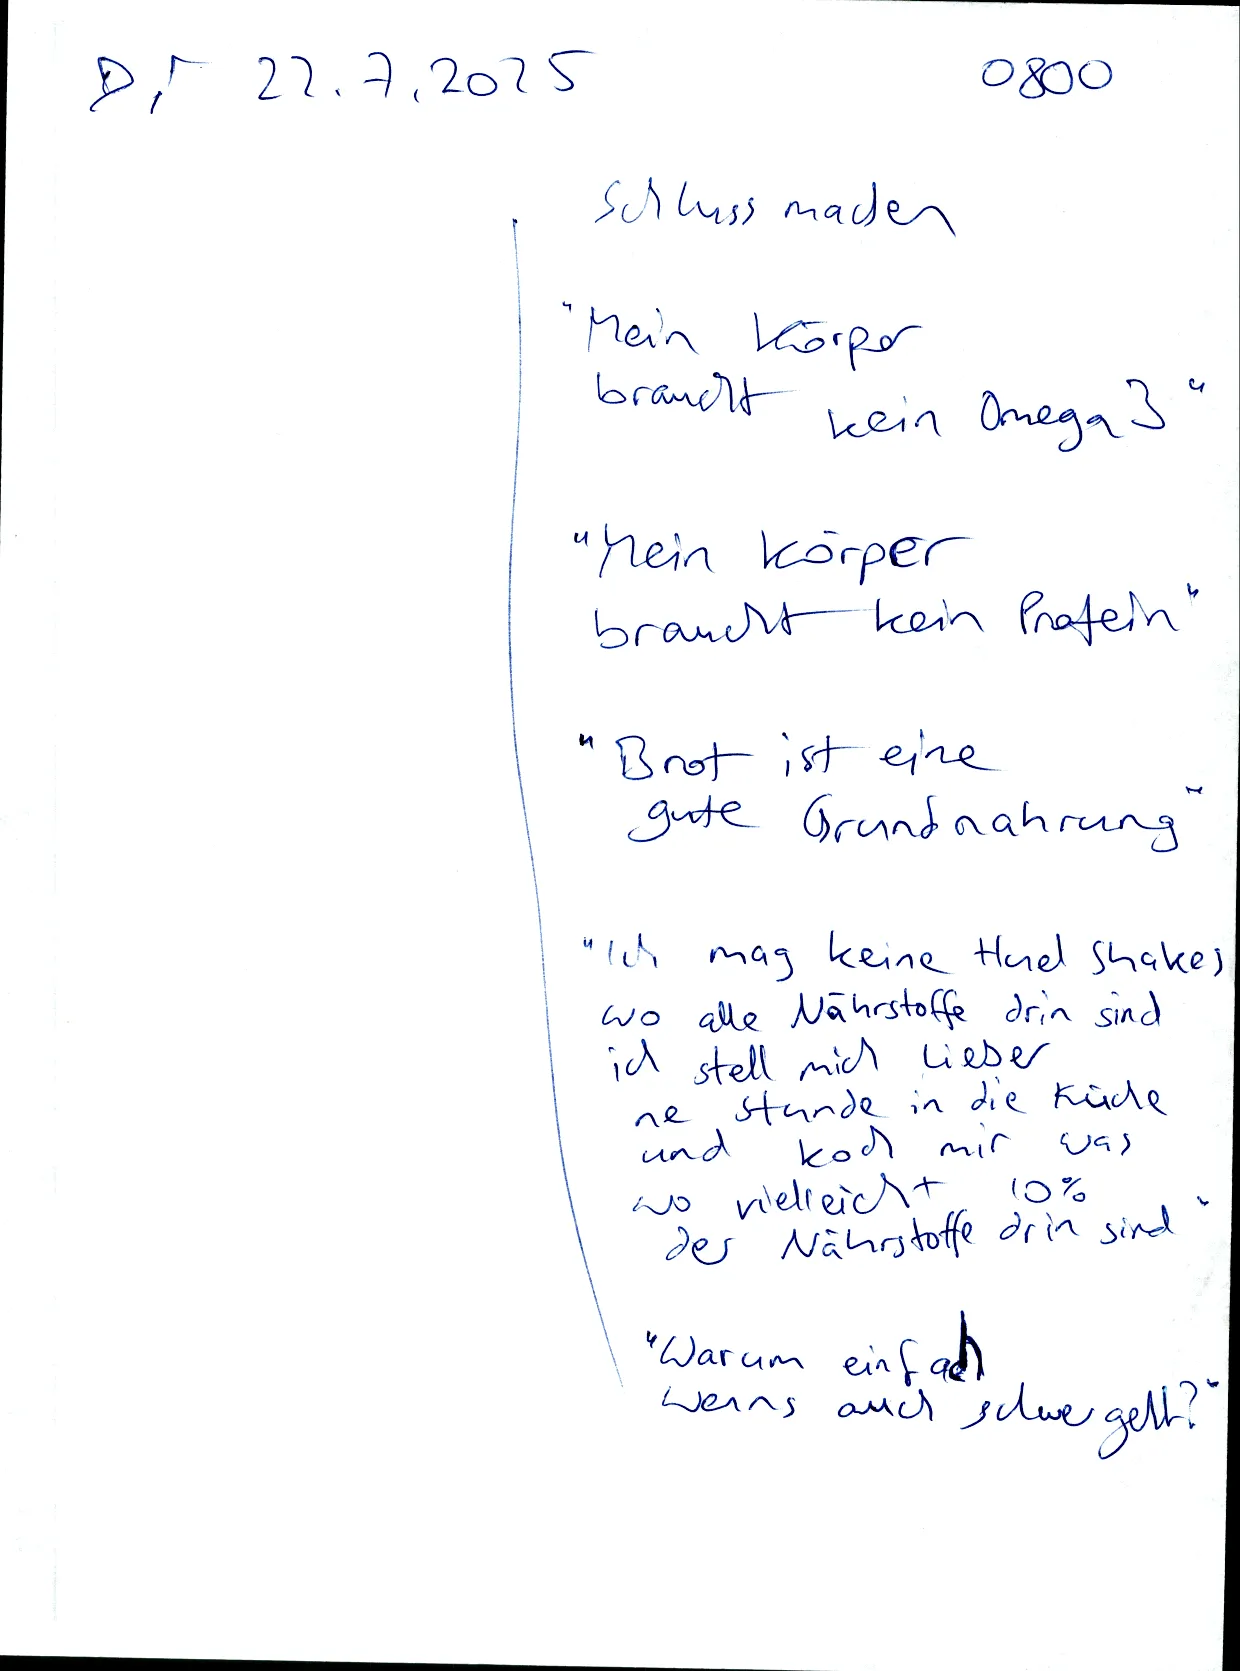 Di 22.7.2025 0800
Schluss machen
"Mein Körper
braucht kein Omega 3"
"Mein Körper
braucht kein Protein"
"Brot ist eine
gute Grundnahrung"
"Ich mag keine Huel Shakes
wo alle Nährstoffe drin sind
ich stell mich lieber
ne Stunde in die Küche
und koch mir was
wo vielleicht 10%
der Nährstoffe drin sind"
"Warum einfach
wenns auch schwer geht?"